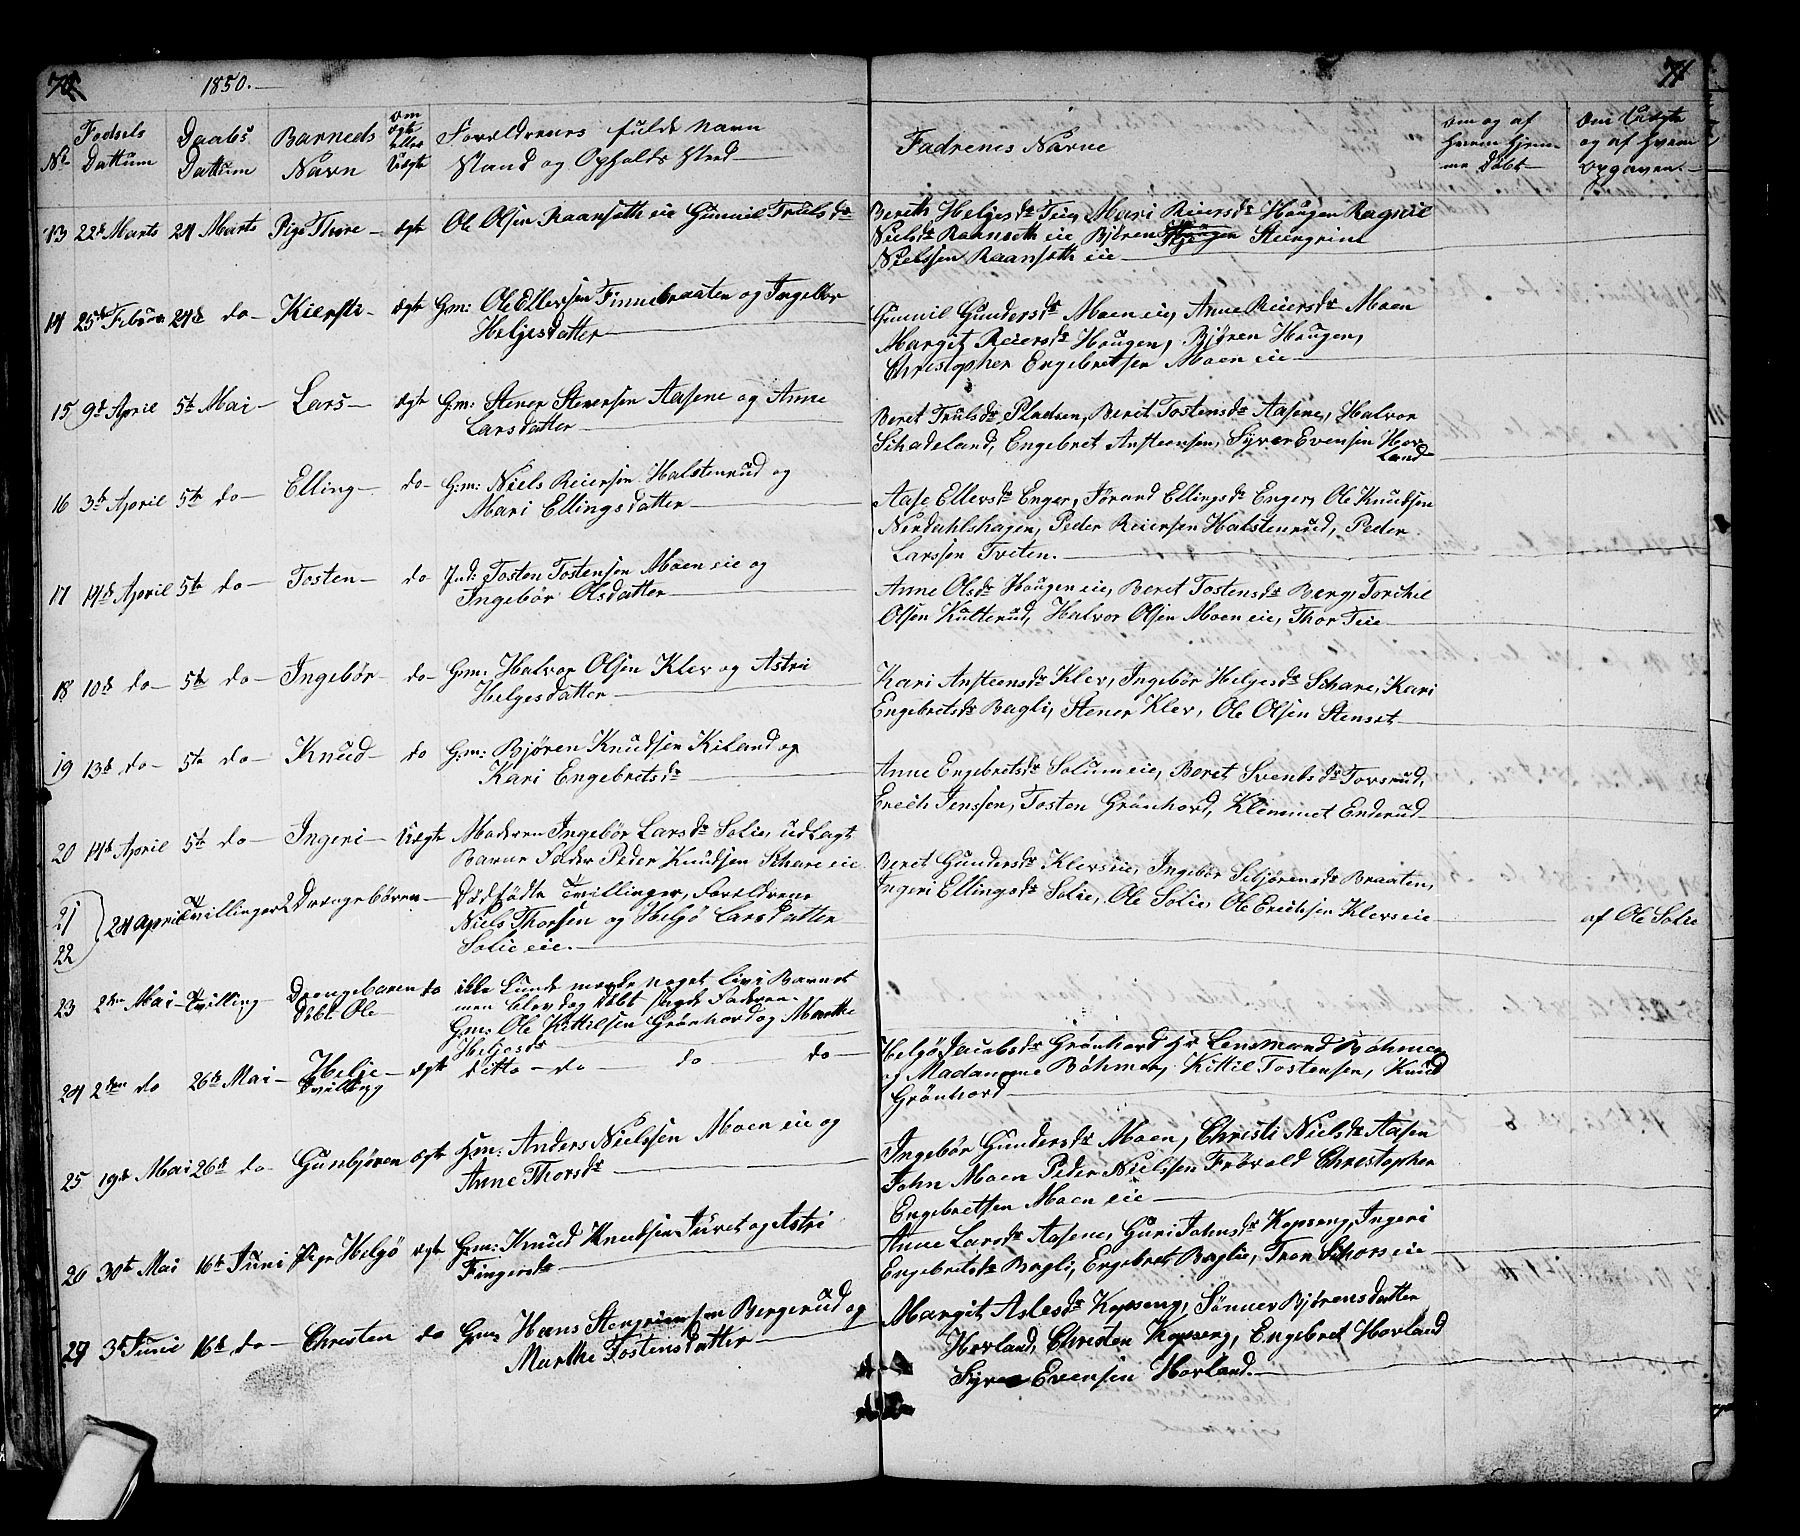 70
1850.
71
No
Fødsels Dattum
Daabs Dattum
Barneds Navn
om ægte eller Uægte
Forældrenes fulde Navn
Stand og Opholds Sted
Fadrenes Navne
om og af hvem hjemme Døbt
Om Uægte og af hvem opgaven
13 22de Marts 24 Marts Pige Thore ægte Ole Olsen Raansæth eie Gunnil Truls dr
Berith Helges dr Teie, Mari Reiers dr Hougen Ragnil
Niels dr Raanseth eie Bjøren Hougen Steengrim
Nielssen Raansæth eie
14 25de Febr 24de do Kiersti ægte Gm: Ole Ellevsen Finnebraaten og Ingebor
Helgesdatter
Gunnil Gunders dr Moen eie, Anne Reiers dr Moen
Margit Reiers dr Hougen, Bjøren Hougen,
Christopher Engebretsen Moen eie
15 9de April 5te Mai Lars ægte Gm: Stener Stenersen Aasene og Anne
Larsdatter
Beret Truls dr Pladsen, Berit Tostens dr Aasene, Halvor
Skadeland, Engebret Anstensen, Syver Evensen Hovland
16 3de April 5te do Elling do Gm: Niels Reiersen Halstenrud og
Mari Ellingsdatter
Aase Ellevs dr Enger, Jørand Ellings dr Enger, Ole Knudsen
Nerdahlshagen, Peder Reiersen Halstenrud, Peder
Larssen Tveten.
17 14de April 5te do Tosten do Ind: Tosten Tostensen Moen eie og
Ingebør Olsdatter
Anne Ols dr Hougen eie, Beret Tostens dr Berg, Torkil
Olsen Kutterud, Halvor Olsen Moen eie, Thor Teie
18 10de do 5te do Ingebør do Gm: Halvor Olsen Klev og Astri
Helgesdatter
Kari Ansteens dr Klev, Ingebør Helges dr Skare, Kari
Engebrets dr Bagli, Stener Klev, Ole Olsen Stenset
19 13de do 5te do Knud do Gm: Bjøren Knudsen Kiland og
Kari Engebrets dr
Anne Engebrets dr Solum eie, Beret Svends dr Tovsrud,
Erich Jenssen, Tosten Grønhovd, Klemmet Enderud
20 14de April 5te do Ingeri Uægte Moderen Ingebør Lars dr Solie, udlagt
Barne Fader Peder Knudsen Skare eie
Beret Gunders dr Klevs eie, Ingebør Schjørens dr Braaten,
Ingeri Ellings dr Solie, Ole Solie, Ole Erichsen Klevs eie
af Ole Solie
21 22 24 April Tvillinger 2 Drængebøren Dødfødte Tvillinger, Forældrene
Niels Thorsen og Helgø Larsdatter
Solie eie.
23 2den Mai Tvilling Drengebaren døbt Ole do ikke kunde merke noget liv i Barnet
men blev dog døbt sagde Faderen
Gm: Ole Kittilsen Grønhovd og Marthe
Helges dr
24 2den do 26de Mai Helge Tvilling ægte ditto do do do
Helgø Jacobs dr Grønhovd hr Lensmand Bøhmer
og Madamme Bøhmer, Kittil Tostensen, Knud
Grønhovd
25 19de Mai 26de do Gunbjøren ægte Gm: Anders Nielssen Moen eie og
Anne Thors dr
Ingebør Gunders dr Moen, Christi Niels dr Aasen
John Moen Peder Nielssen Frøvold Christopher
Engebretsen Moen eie
26 30te Mai 16de Juni Pige Helgø ægte Gm: Knud Knudsen Juvet og Astri
Fingers dr
Anne Lars dr Aasene, Guri Johns dr Kopseng, Ingeri
Engebrets dr Bagli, Engebret Baglie, Tron Skors eie
27 3de Juni 16de do Christen do Gm: Hans Stengrimsen Bergerud og
Marthe Tostensdatter
Margit Asles dr Kopseng, Sønnev Bjørensdatter
Hovland, Christen Kopseng, Engebret Hovland
Syver Evensen Hovland.